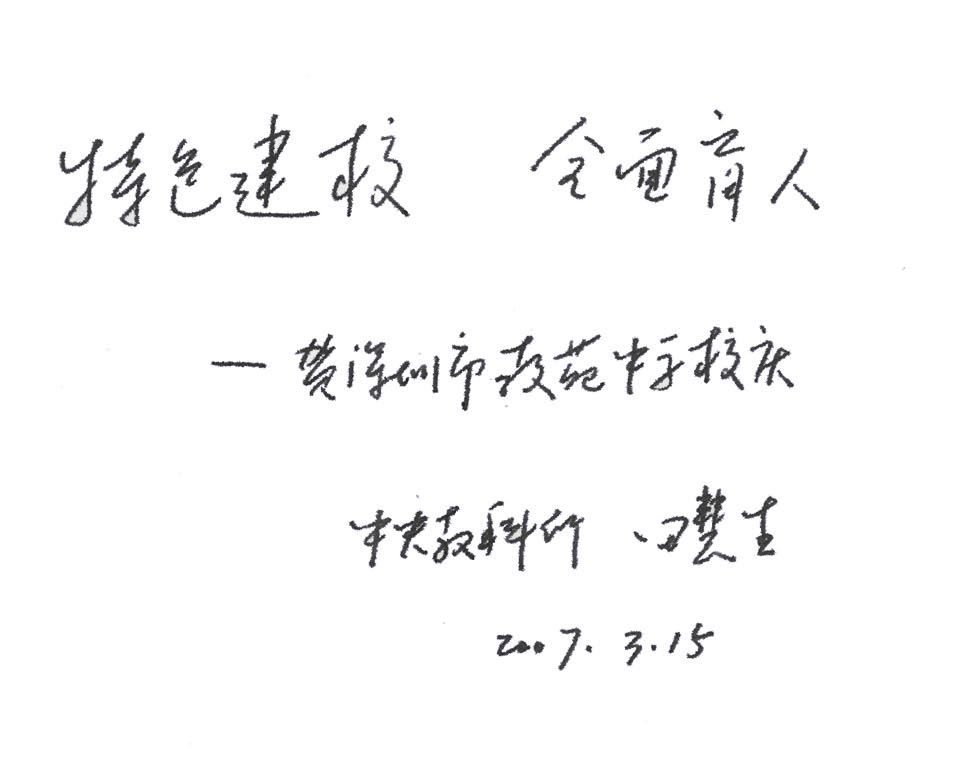 特色建校 全面育人
— 贺深圳市教苑中学校庆
中央教科所 田慧生
2007.3.15